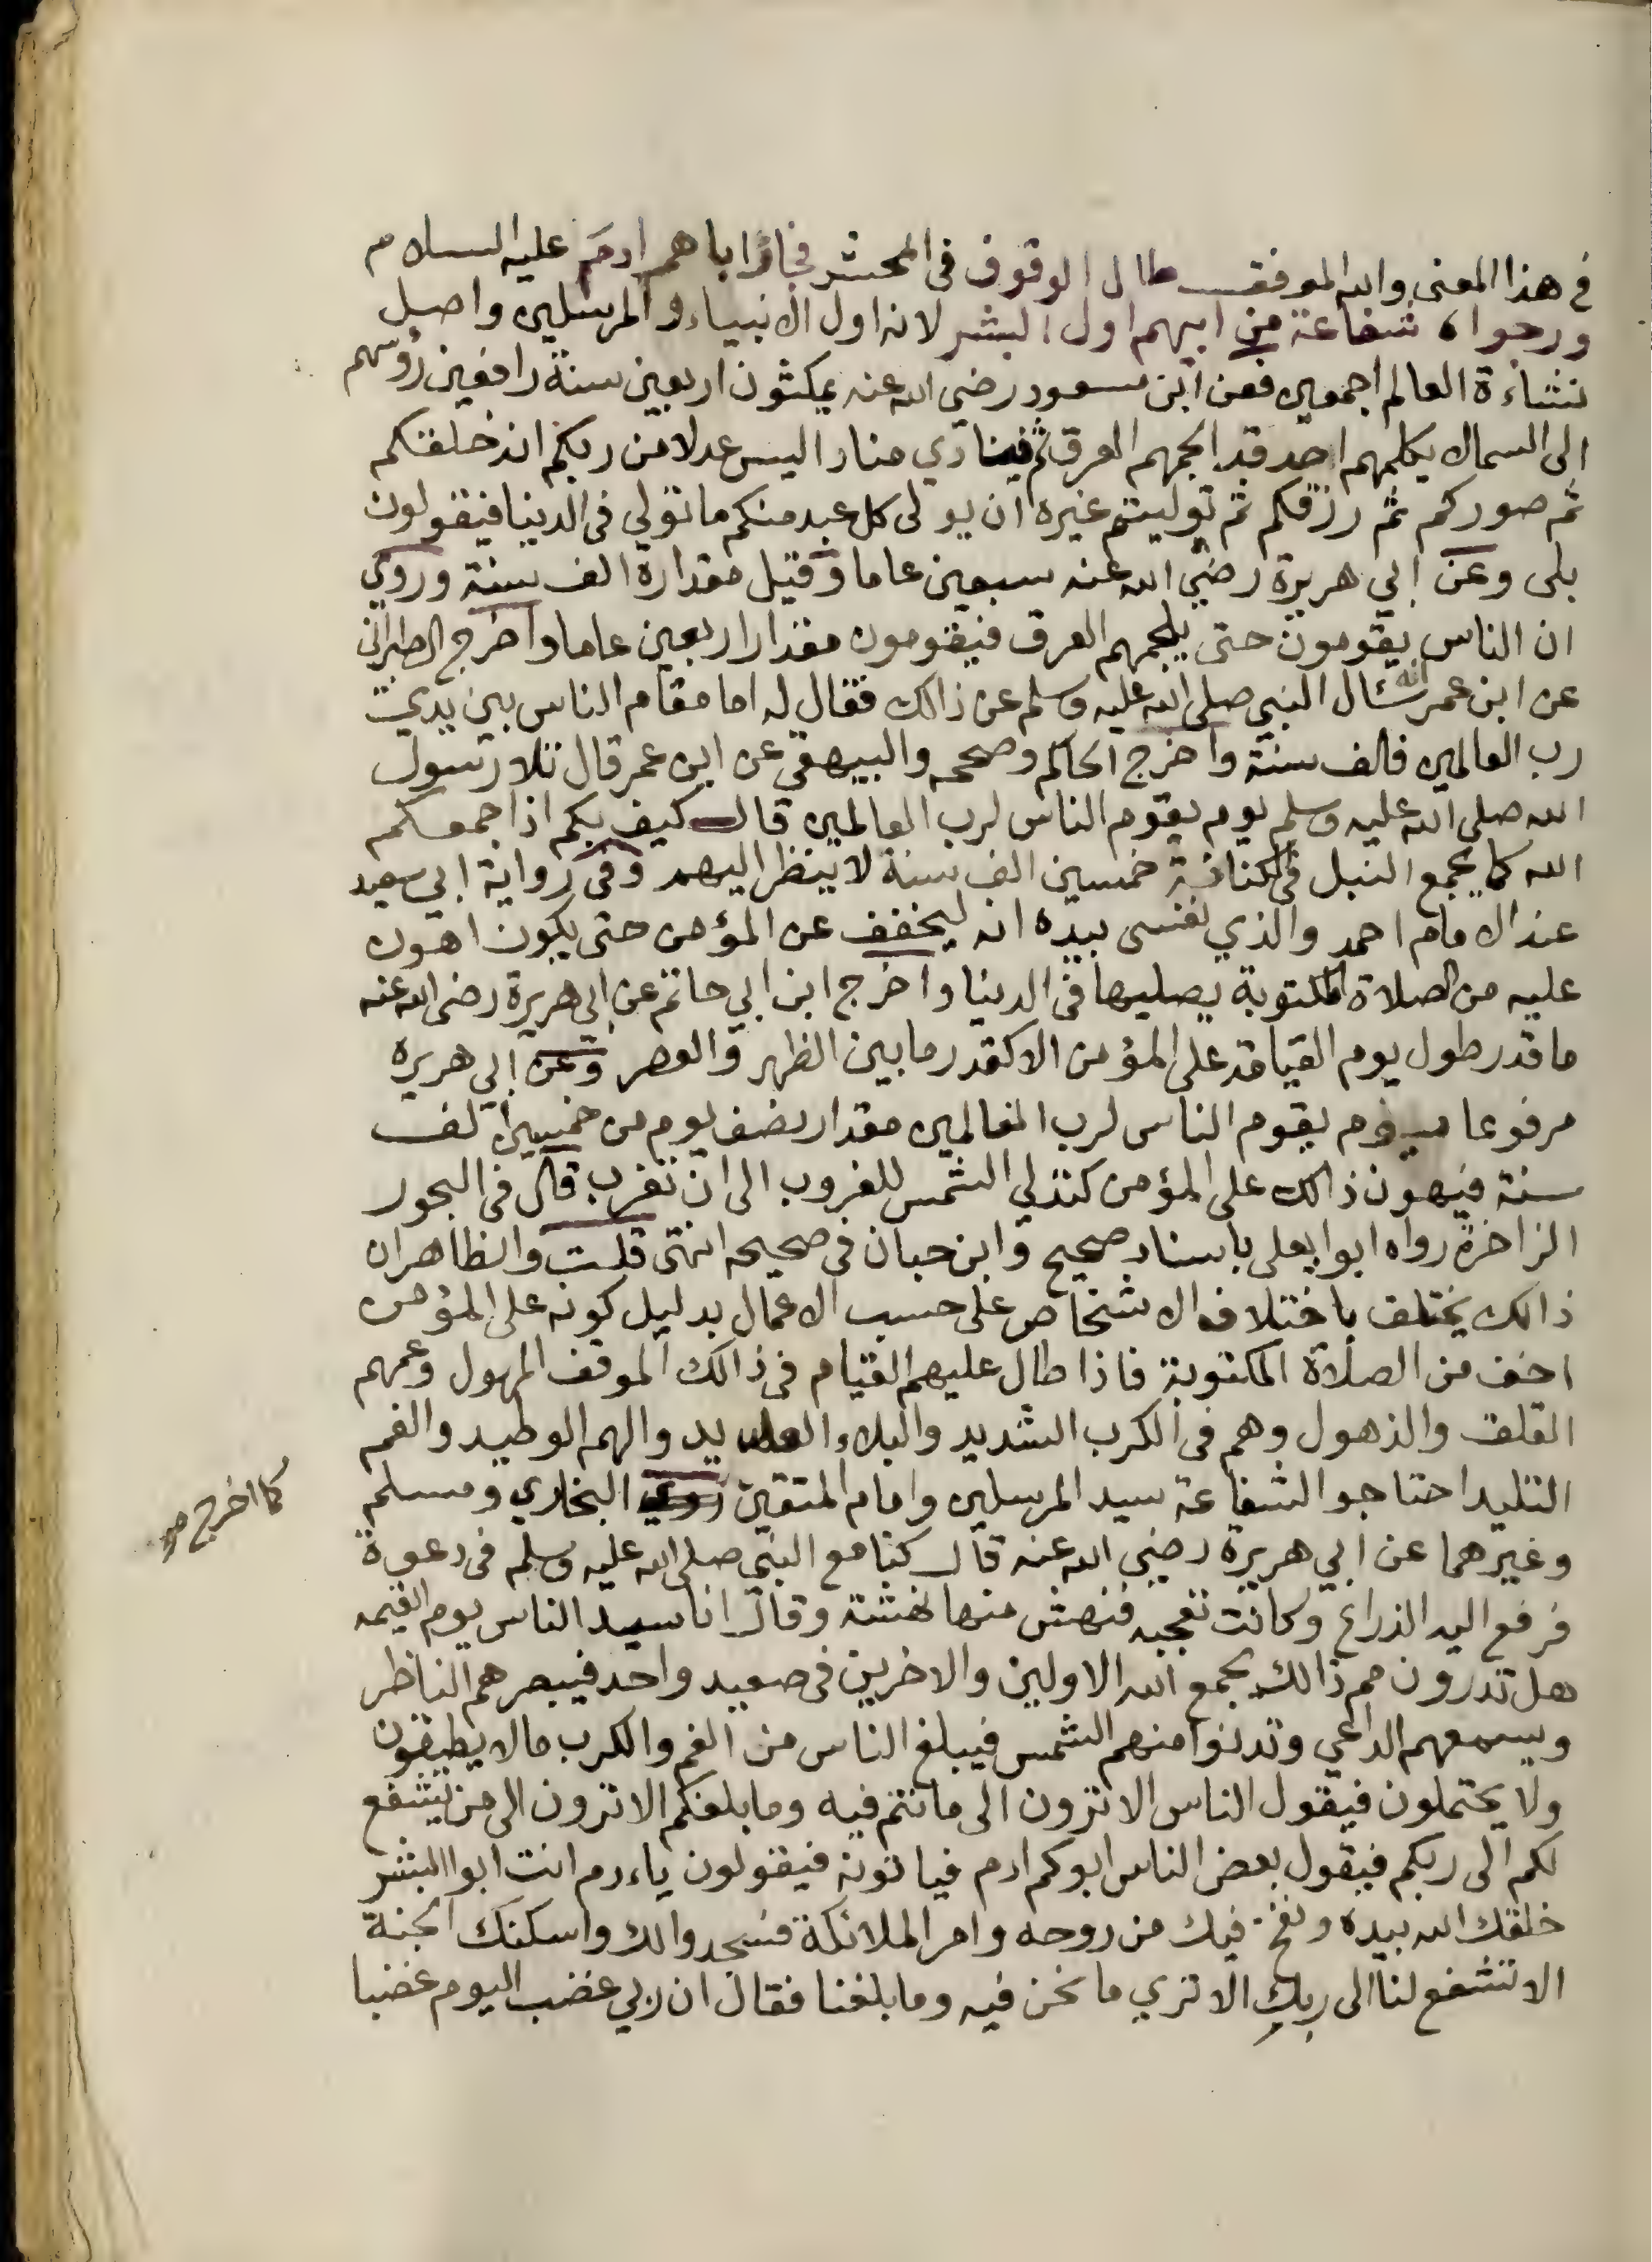 في هذا المعنى والله الموفق طال الوقوف فى المحشر فجاؤا اباهم ادم عليه السلام
ورجوا شفاعة من ابيهم اول البشر لانه اول الانبياء والمرسلين واصل
نشاءة العالم اجمعين فعن ابن مسعود رضي الله عنه يمكثون اربعين سنة رافعين رؤسهم
الى السما لا يكلمهم احد قد الجمهم العرق ثم ينادي مناد اليس عدلا من ربكم انه خلقكم
ثم صوركم ثم رزقكم ثم توليتم غيره ان يولى كل عبد منكم ما تولي فى الدنيا فيقولون
بلى وعن ابي هريرة رضي الله عنه سبعين عاما وقيل مقداره الف سنة وروي
ان الناس يقومون حتى يلجمهم العرق فيقومون مقدار اربعين عاما واخرج الطبراني
عن ابن عمر انه سئال النبي صلى الله عليه وسلم عن ذالك فقال له اما مقام الناس بين يدي
رب العالمين فالف سنة واخرج الحاكم وصححه والبيهقي عن ابن عمر قال تلا رسول
الله صلى الله عليه وسلم يوم يقوم الناس لرب العالمين قال كيف بكم اذا جمعكم
الله كما يجمع النبل فى الكنانة خمسين الف سنة لا ينظر اليهم وفى رواية ابي سعيد
عند الامام احمد والذي نفسى بيده انه ليخفف عن المؤمن حتى يكون اهون
عليه من الصلاة المكتوبة يصليها فى الدنيا واخرج ابن ابي حاتم عن ابي هريرة رضى الله عنه
ما قدر طول يوم القيامة على المؤمن الا كقدر ما بين الظهر والعصر وعن ابي هريرة
مرفوعا يوم يقوم الناس لرب العالمين مقدار نصف يوم من خمسين الف
سنة فيهون ذالك على المؤمن كتدلي الشمس للغروب الى ان تغرب قال فى البحور
الزاخرة رواه ابوا يعلى باسناد صحيح وابن حبان فى صحيحه انتهى قلت والظاهر ان
ذالك يختلف باختلاف الاشخاص على حسب الاعمال بدليل كونه على المؤمن
اخف من الصلاة المكتوبة فاذا طال عليهم القيام فى ذالك الموقف المهول وعمهم
القلق والذهول وهم فى الكرب الشديد والبلاء والهم الوطيد والغم
التليد احتاجو الشفاعة سيد المرسلين وامام المتقين روي البخاري ومسلم
كما اخرج
وغيرهما عن ابي هريرة رضي الله عنه قال كنا مع النبي صلى الله عليه وسلم فى دعوة
فرفع اليه الذراع وكانت تعجبه فنهش منها نهشة وقال انا سيد الناس يوم القيمه
هل تدرون مم ذالك يجمع الله الاولين والاخرين فى صعيد واحد فيبصرهم الناظر
ويسمعهم الداعي وتدنوا منهم الشمس فيبلغ الناس من الغم والكرب ما لا يطيقون
ولا يحتملون فيقول الناس الا ترون الى ما انتم فيه وما بلغكم الا ترون الى من يشفع
لكم الى ربكم فيقول بعض الناس ابوكم ادم فياتونه فيقولون ياءدم انت ابوا البشر
خلقك الله بيده ونفخ فيك من روحه وامر الملائكة فسجدوا لك واسكنك الجنة
الا تشفع لنا الى ربك الا ترى ما نحن فيه وما بلغنا فقال ان ربي غضب اليوم غضبا